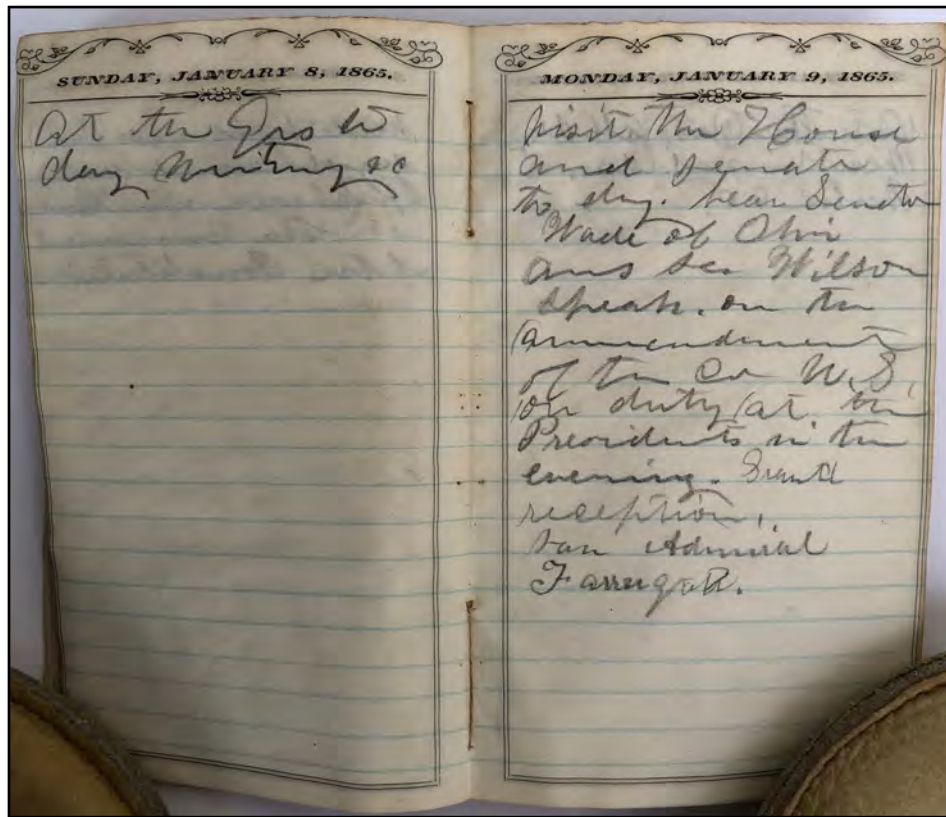 SUNDAY, JANUARY 8, 1865.
At the Qrs to
day writing &c
MONDAY, JANUARY 9, 1865.
visit the House
and senate
to day. hear Senator
Wade of Ohio
and Sen Wilson
speak. on the
ammendment
of the Co U.S.
on duty at the
Presidents in the
evening. Grand
reception,
saw Admiral
Farragutt.